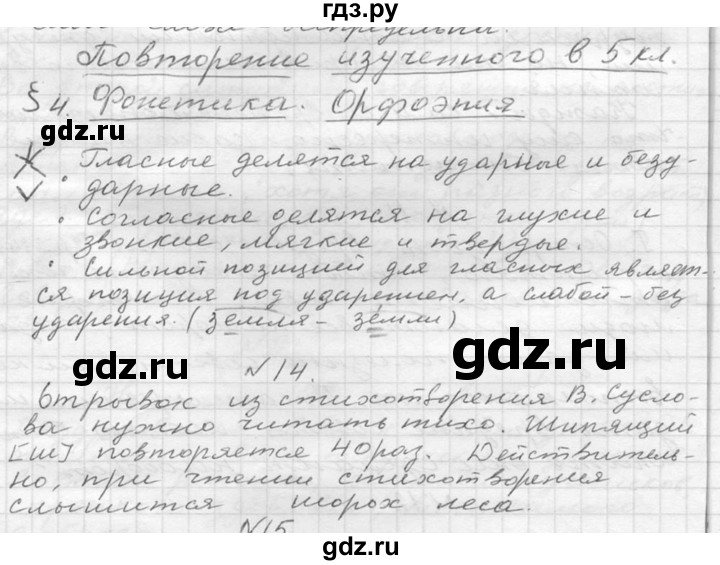 гдз.ру
Повторение изученного в 5 кл.
§ 4. Фонетика. Орфоэпия.
gdz.ru
• Гласные делятся на ударные и безу-
дарные.
• Согласные делятся на глухие и
звонкие, мягкие и твердые.
• Сильной позицией для гласных являет-
ся позиция под ударением, а слабой – без
ударения. (земля – зéмли)
gdz.ru
gdz.ru
№ 14.
Отрывок из стихотворения В. Сусло-
ва нужно читать тихо. Шипящий
[ш] повторяется 40 раз. Действитель-
но, при чтении стихотворения
слышится шорох леса.
№15
gdz.ru
gdz.ru